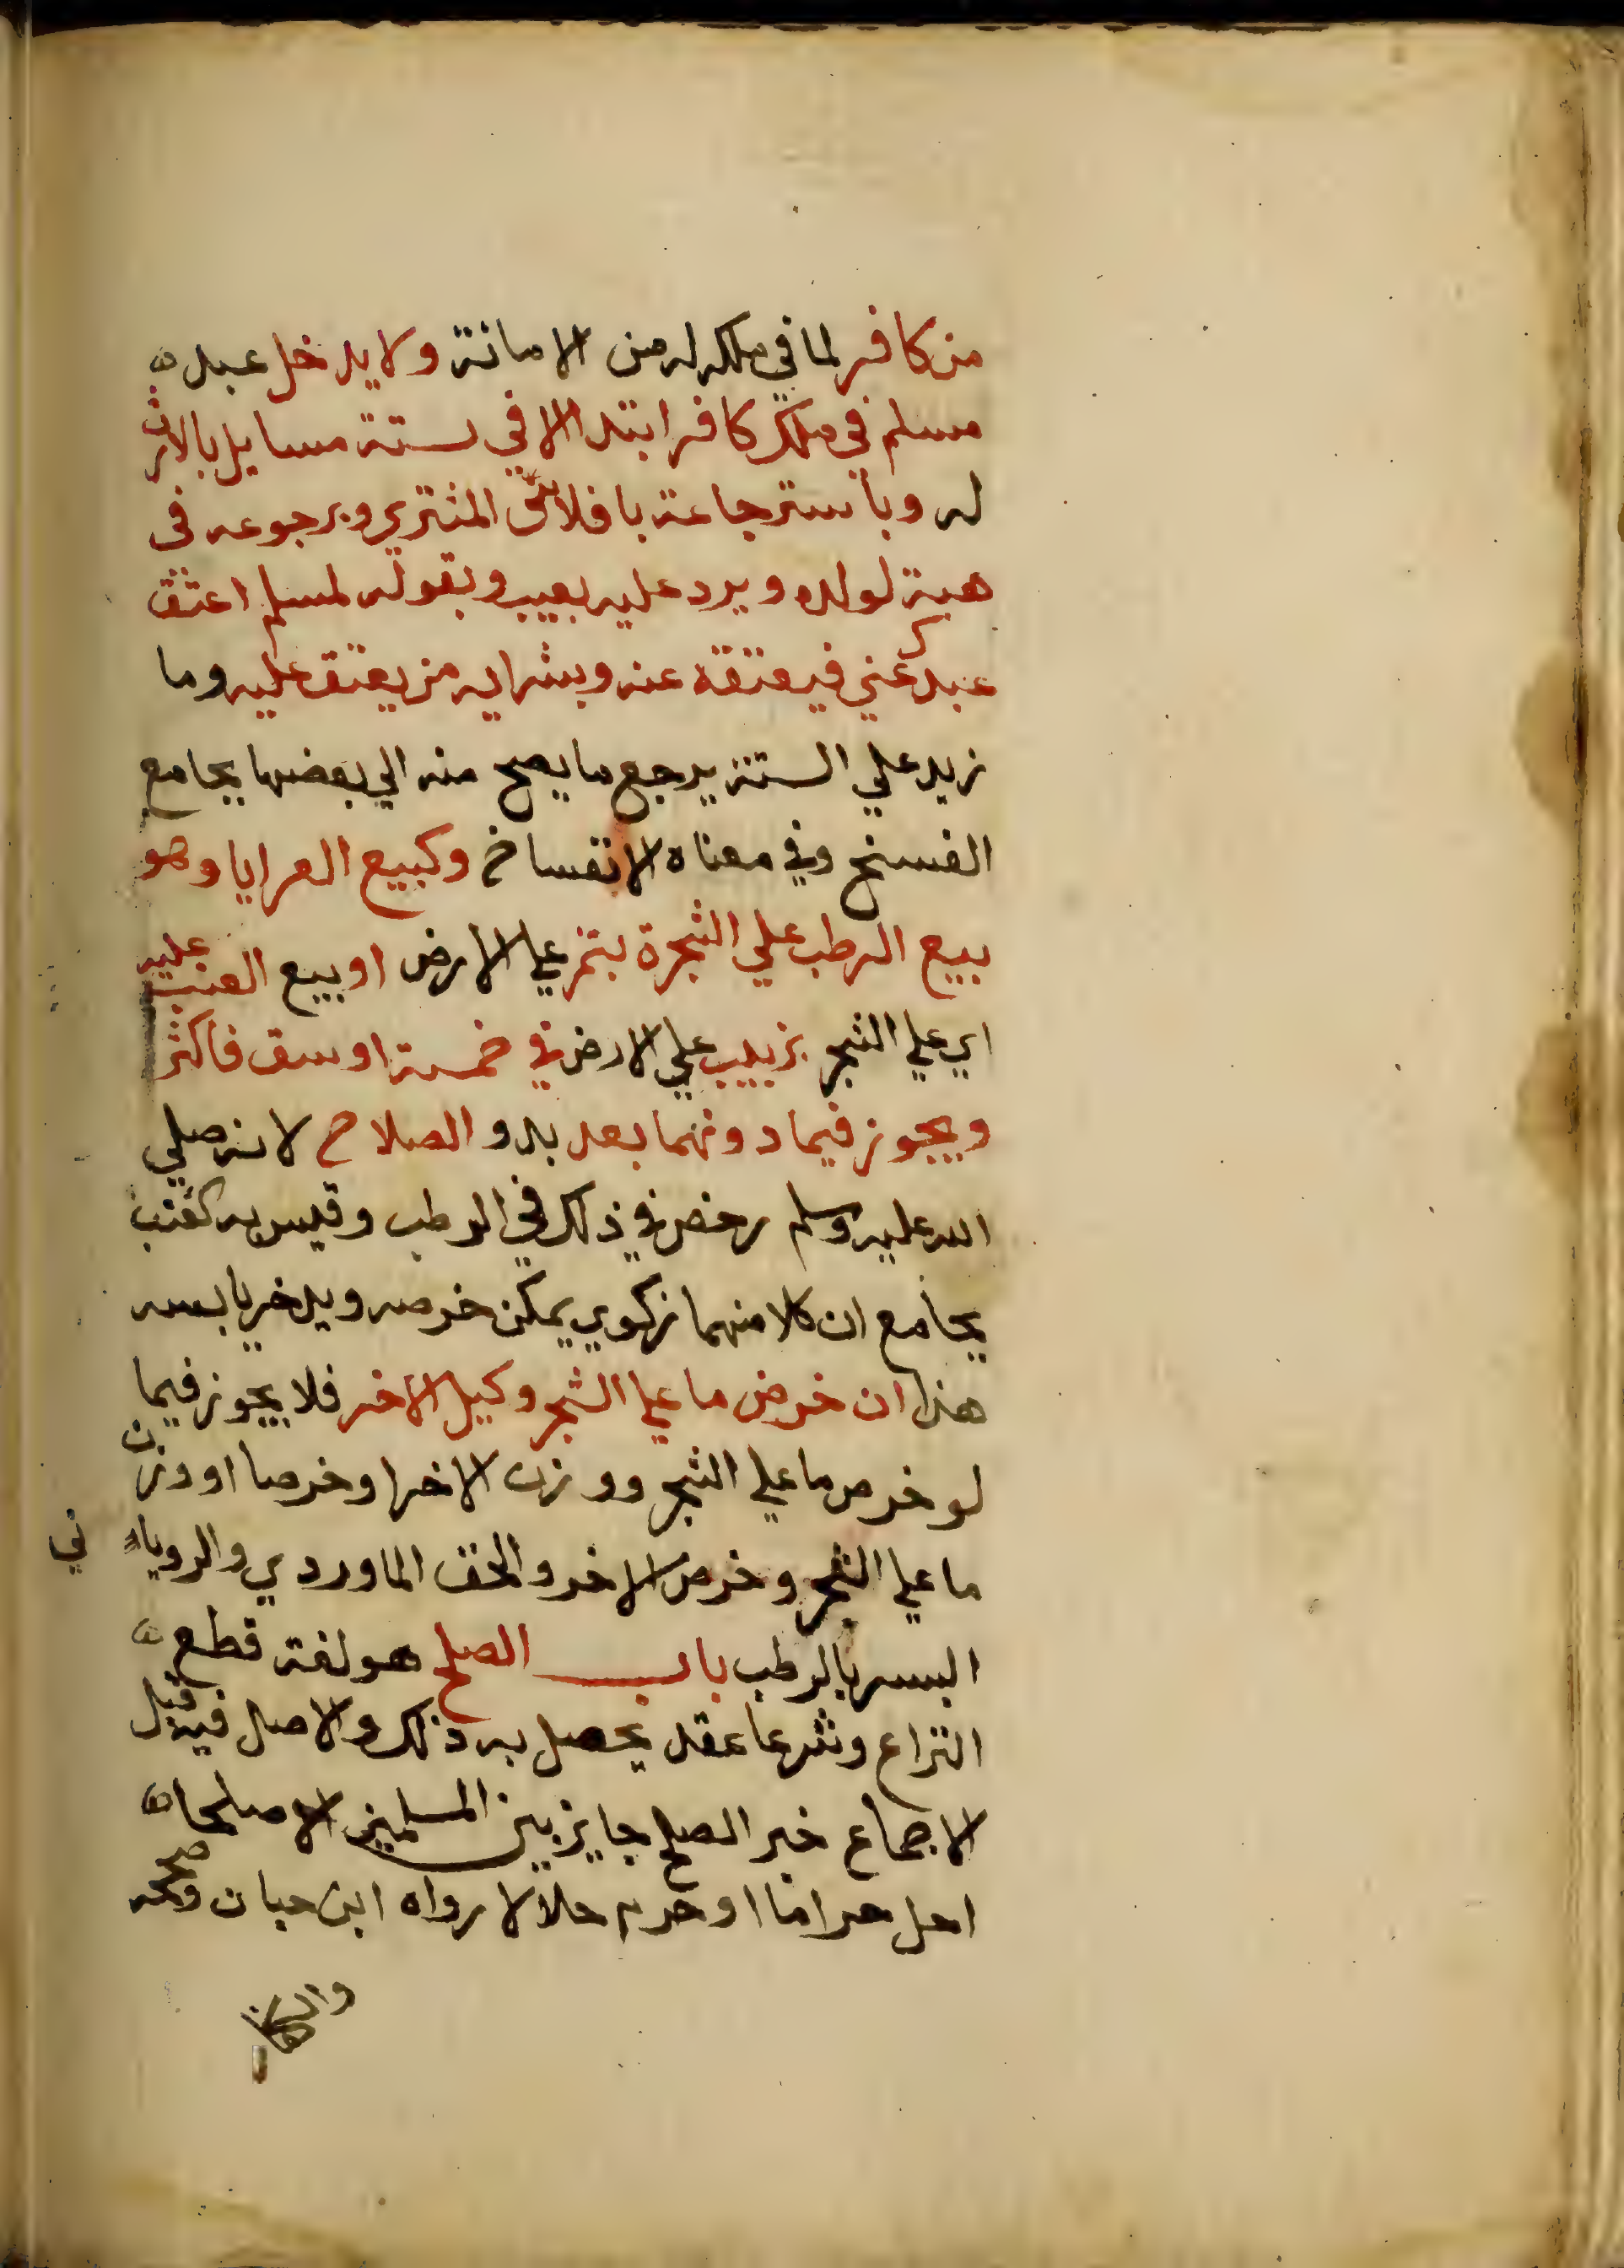 من كافر لما في ملكه له من الامانة ولا يدخل عبد
مسلم في ملك كافر ابتدا الا في ستة مسايل بالارث
له وباسترجاعه بافلاس المشتري وبرجوعه في
هبة لولده ويرد عليه بعيب وبقوله لمسلم اعتق
عبدك عني فيعتقه عنه وبشرايه من يعتق عليه وما
زيد علي الستة يرجع ما يصح منه الي بعضها بجامع
الفسخ وفي معناه الانفساخ وكبيع العرايا وهو
بيع الرطب علي الشجرة بتمر علي الارض او بيع العنب عليه
اي علي الشجر بزبيب علي الارض في خمسة اوسق فاكثر
ويجوز فيما دونهما بعد بدو الصلاح لانه صلي
الله عليه وسلم رخص في ذلك في الرطب وقيس به كعنب
بجامع ان كلا منهما زكوي يمكن خرصه ويدخر يابسه
هذا ان خرص ما علي الشجر وكيل الاخر فلا يجوز فيما
لو خرص ما علي الشجر ووزن الاخر او خرصا او وزن
ما علي الشجر وخرص الاخر والحق الماوردي والرويا ني
البسر بالرطب باب الصلح هو لغة قطع
النزاع وشرعا عقد يحصل به ذلك والاصل فيه قبل
الاجماع خبر الصلح جايز بين المسلمين الا صلحا
احل حراما او حرم حلالا رواه ابن حبان وصححه